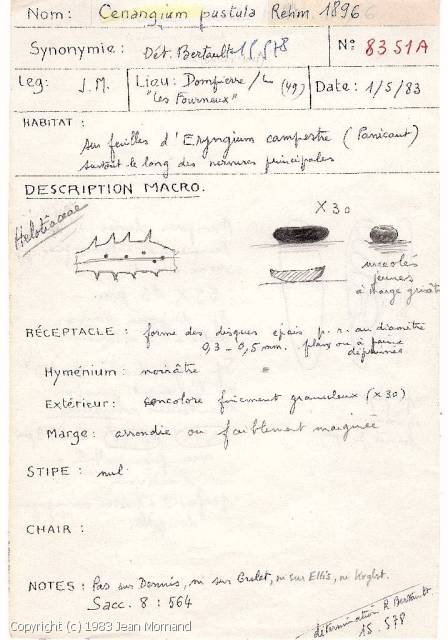 Nom: Cenangium pustula Rehm 1896
Synonymie: Dét. Bertault 15578
N° 8351A
Leg: J.M.
Lieu: Dompierre /L (49)
"Les Fourneux"
Date: 1/5/83
HABITAT :
sur feuilles d'Eryngium campestre (Panicaut)
surtout le long des nervures principales
DESCRIPTION MACRO.
Helotiaceae
X30
urcéolés
jeunes
à marge grisâtre
RÉCEPTACLE : forme des disques épais p.r. au diamètre
0,3 - 0,5 mm. plans ou à peine
déprimés
Hyménium: noirâtre
Extérieur: concolore finement granuleux (x30)
Marge: arrondie ou faiblement marginée
STIPE : nul
CHAIR :
NOTES : Pas sur Dennis, ni sur Grelet, ni sur Ellis, ni
Sacc. 8 : 564
détermination R. Bertault
15.578
Copyright (c) 1983 Jean Mornand